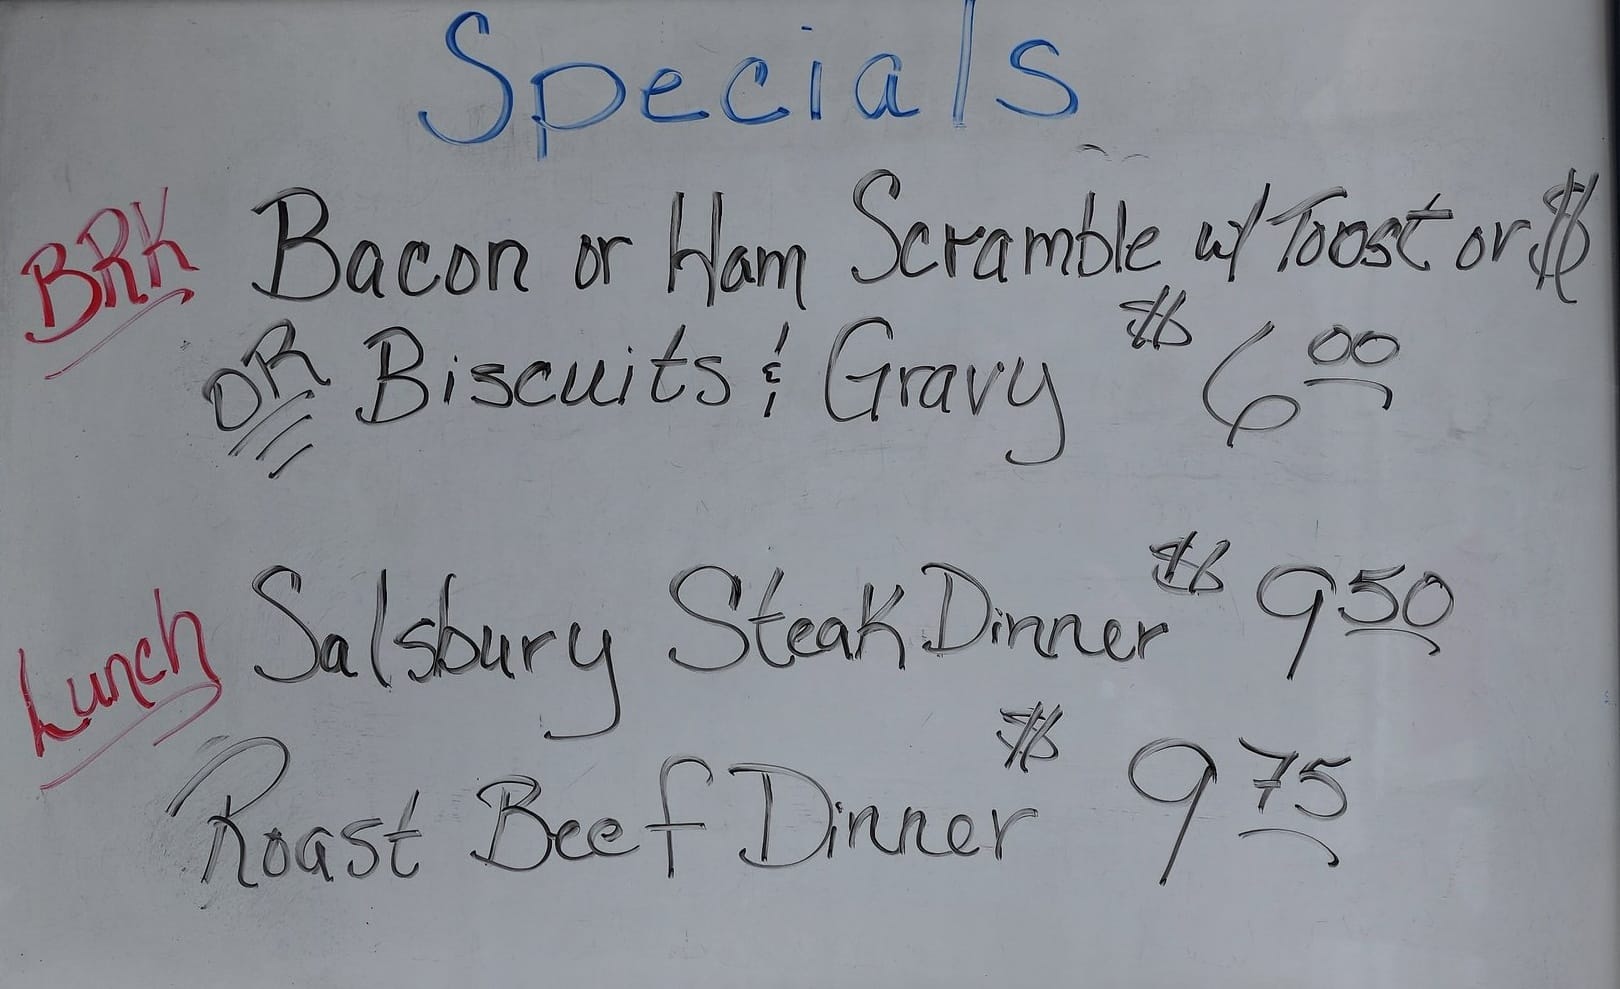 Specials
BRK Bacon or Ham Scramble w/ Toast or $
OR Biscuits & Gravy $ 6 00
Lunch Salsbury Steak Dinner $ 9 50
Roast Beef Dinner $ 9 75